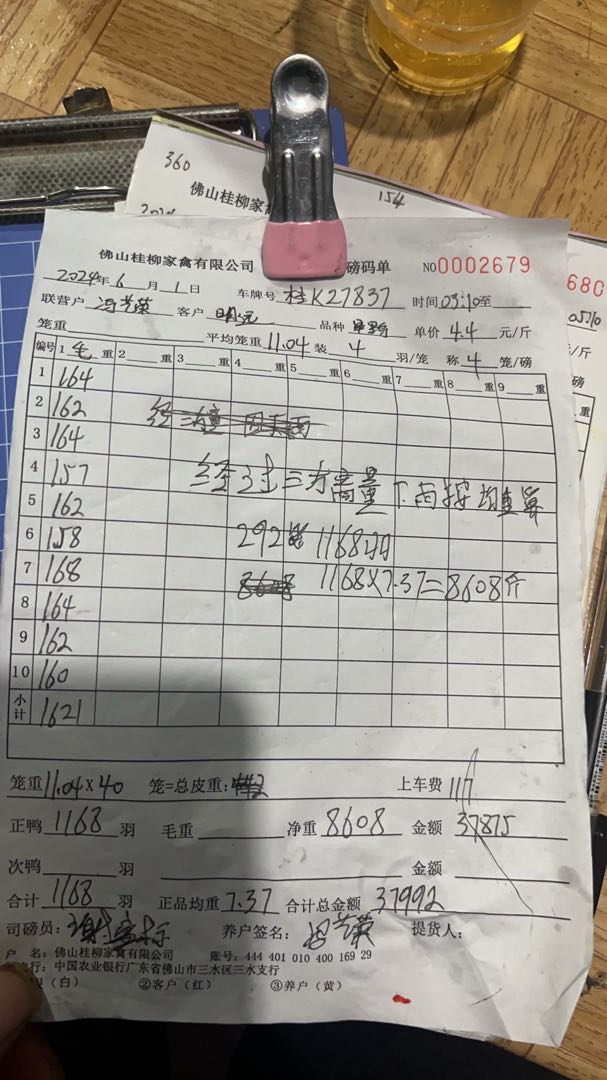 360
佛山桂柳家禽
154
68C
0570
佛山桂柳家禽有限公司 磅码单 NO0002679
2024年6月1日 车牌号 桂K27837 时间 03:10至
联营户 冯兰荣 客户 明记 品种 单价 4.4 元/斤
笼重 平均笼重 11.04 装 4 羽/笼 称 4 笼/磅
编号 1 毛 重 2 重 3 重 4 重 5 重 6 重 7 重 8 重 9 重
1 164
2 162
3 164
经过三方商量下雨按均重算
4 157
5 162
6 158 292笼 1168羽
7 168 1168×7.37=8608斤
8 164
9 162
10 160
小计 1621
笼重 11.04×40 笼=总皮重: 上车费 117
正鸭 1168 羽 毛重 净重 8608 金额 37875
次鸭 羽 金额
合计 1168 羽 正品均重 7.37 合计总金额 37992
司磅员: 养户签名: 冯兰荣 提货人:
户 名: 佛山桂柳家禽有限公司 账号: 444 401 010 400 169 29
行: 中国农业银行广东省佛山市三水区三水支行
(白) ②客户(红) ③养户(黄)